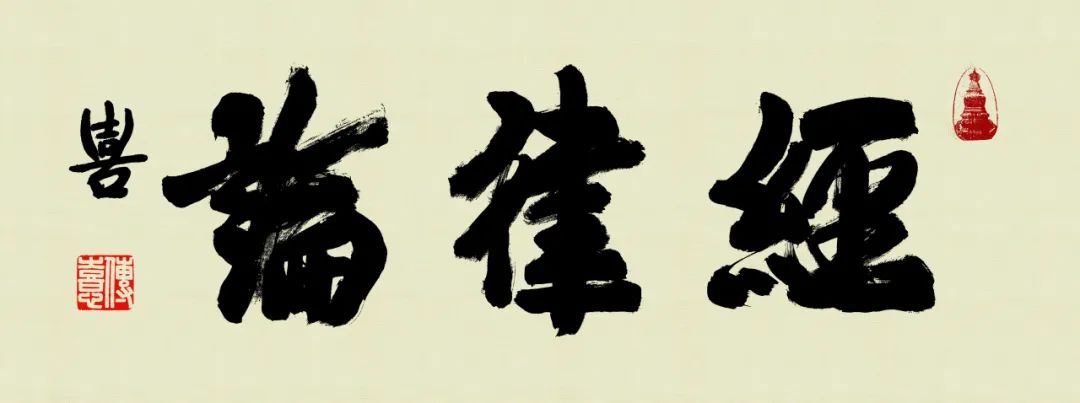 經律論
喜
傳喜